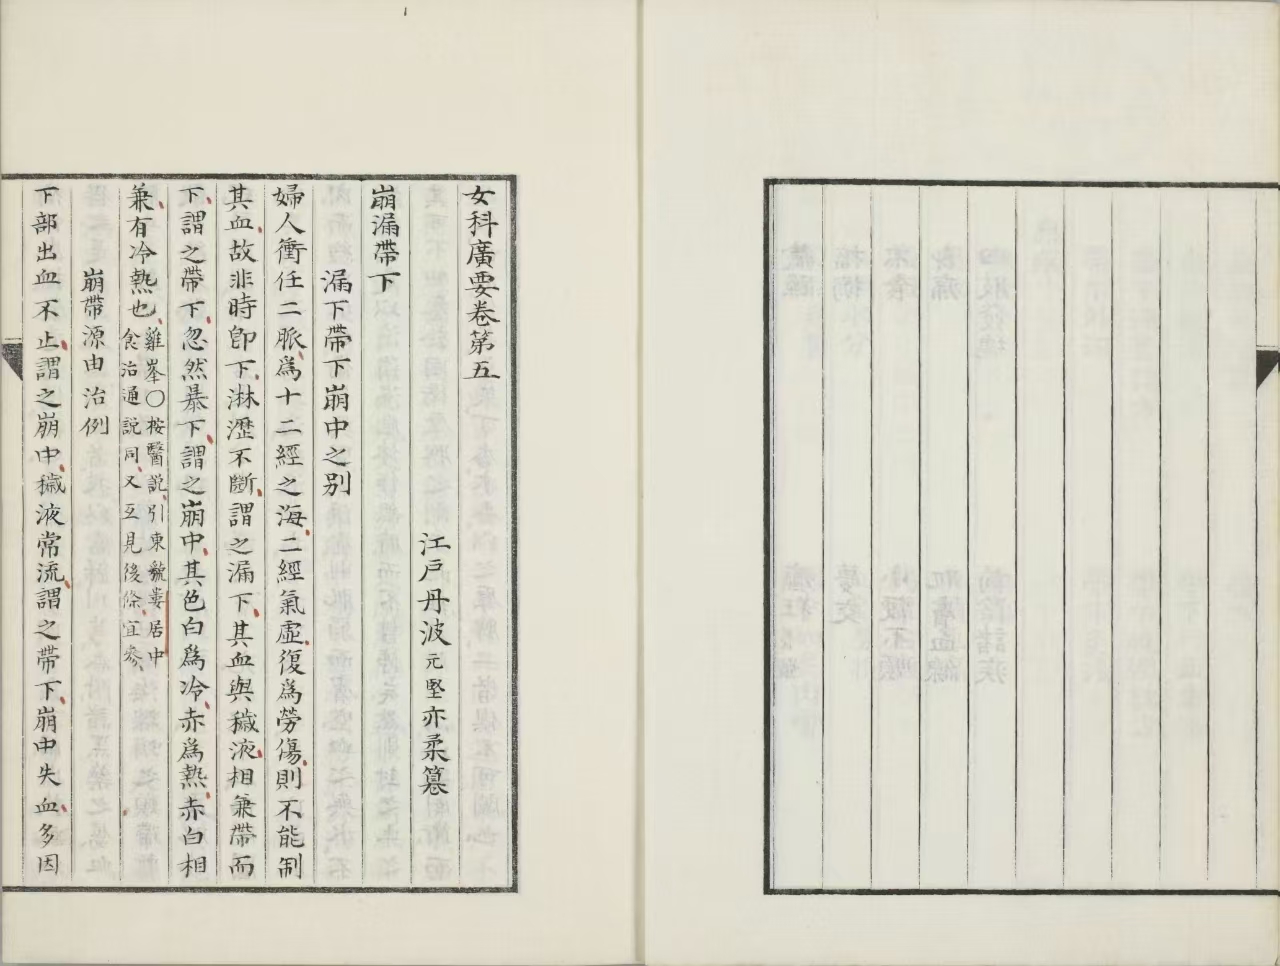 女科廣要卷第五
江戶丹波元堅亦柔篡
崩漏帶下
漏下帶下崩中之别
婦人衝任二脈爲十二經之海二經氣虛復爲勞傷則不能制
其血故非時卽下淋瀝不斷謂之漏下其血與穢液相兼帶而
下謂之帶下忽然暴下謂之崩中其色白爲冷赤爲熱赤白相
兼有冷熱也雞峯○按醫説引東䝉婁居中
食治通説同又互見後條宜參
崩帶源由治例
下部出血不止謂之崩中穢液常流謂之帶下崩中失血多因